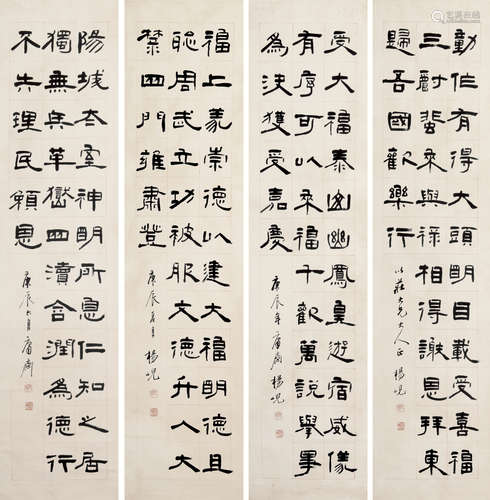 動作有得大頭明目載受喜福
三對蜚來與祿相得謝恩拜東
歸吾國歡樂行
以莊大兄大人正 楊峴
受大福泰山幽鳳皇遊宿威儀
有序可以來福千歡萬說舉事
為決獲受嘉慶
庚辰年庸齋楊峴
福上義崇德以建大福明德且
聰周武立功被服文德升入大
禁四門雍肅登
庚辰六月 楊峴
陽城太室神明所息仁知之居
獨無兵革嶽四瀆合潤為德行
不失理民賴恩
庚辰六月庸齋